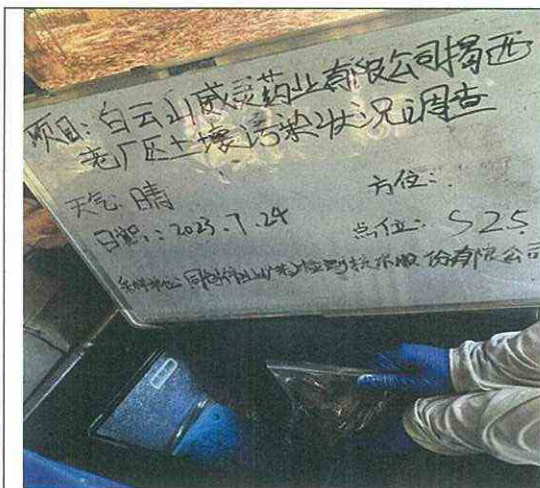 项目：白云山威灵药业有限公司揭西
老厂区土壤污染状况调查
天气：晴
方位：
日期：2023.7.24
点位：S25
采样单位：检测技术股份有限公司